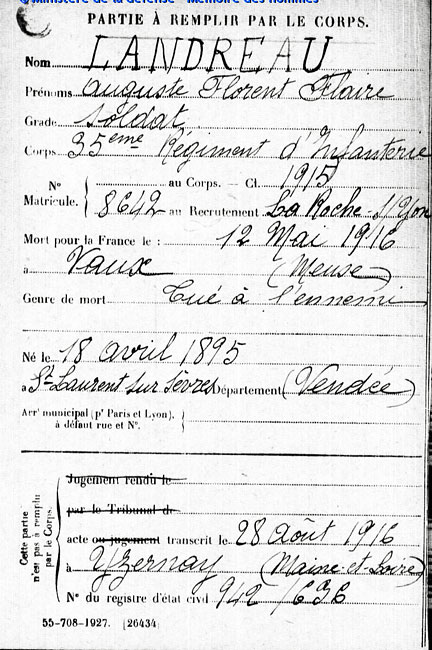 ©Ministère de la défense - Mémoire des hommes
PARTIE À REMPLIR PAR LE CORPS.
Nom LANDREAU
Prénoms Auguste Florent Flaire
Grade Soldat
Corps 35eme Régiment d'Infanterie
N° Matricule. { au Corps. — Cl. 1915
8642 au Recrutement La Roche s/Yon
Mort pour la France le : 12 Mai 1916
à Vaux (Meuse)
Genre de mort Tué à l'ennemi
Né le 18 avril 1895
à St Laurent sur Sèvres Département (Vendée)
Arrt municipal (pr Paris et Lyon),
à défaut rue et N°.
Cette partie n'est pas à remplir par le Corps.
Jugement rendu le
par le Tribunal de
acte ou jugement transcrit le 28 Août 1916
à Yzernay (Maine-et-Loire)
N° du registre d'état civil 942/636
55-708-1927. [26434]